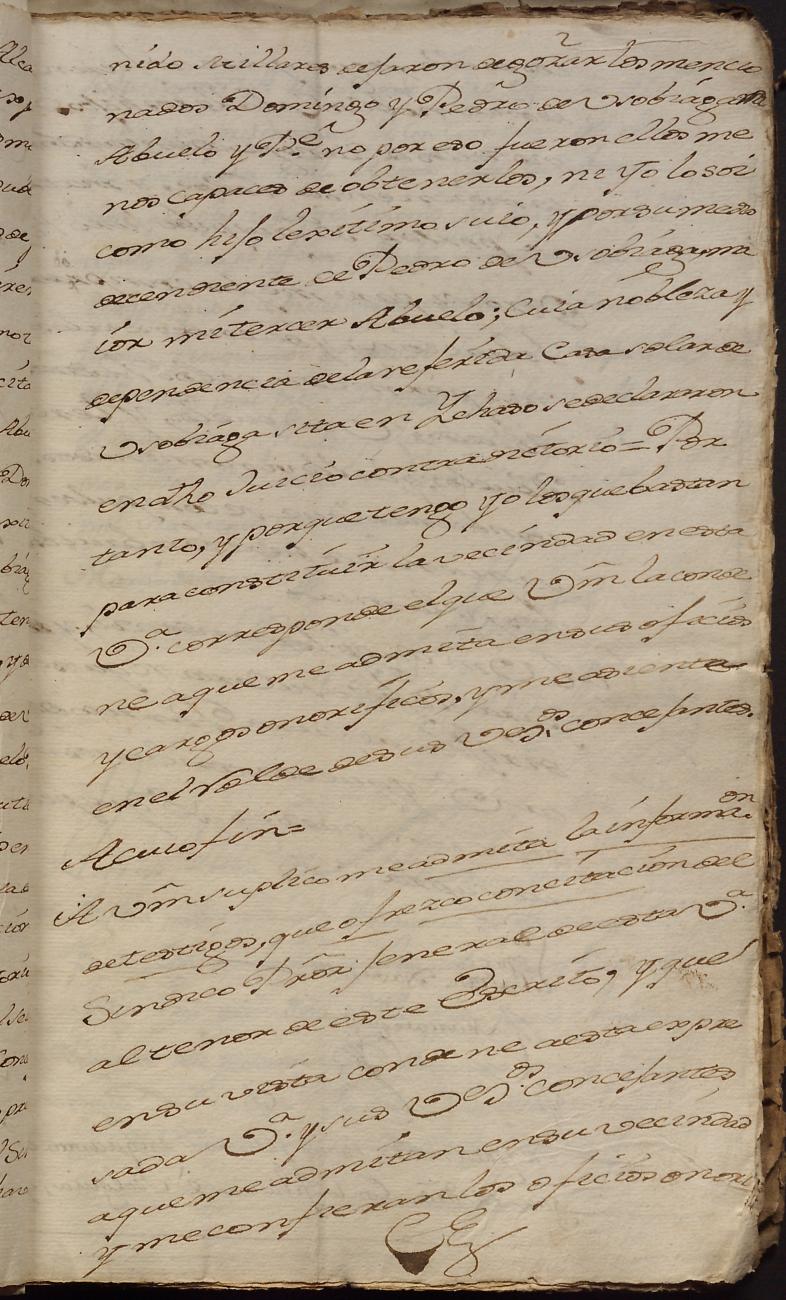 nido Millares dejaron de gozar los mencio
nados Domingo y Pedro de Usobiaga mi
Abuelo y P.e no por eso fueron ellos me
nos capaces de obtenerlos, ni Yo lo soi
como hijo lexitimo suio, y por su medio
decendiente de Pedro de Usobiaga, ma
ior mi tercer Abuelo; Cuia nobleza y
dependencia de la referida Casa solar de
Usobiaga sita en Ychaso se declararon
en dho Juicio contradictorio = Por
tanto, y porque tengo yo los que bastan
para constituir la vecindad en esta
V.a corresponde el que Vm la conde
ne a que me admita en sus oficios
y cargos onorificos, y me asiente
en el Rolde de sus Vez.os concejantes.
A cuio fin =
A Vm suplico me admita la informa.on
de testigos, que ofrezco con citación del
Sindico Pror General de esta V.a
al tenor de este Escrito, y que
en su vista condene a esta expre
sada V.a y sus Vez.os concejantes
a que me admitan en su vecindad
y me confieran los oficios onori